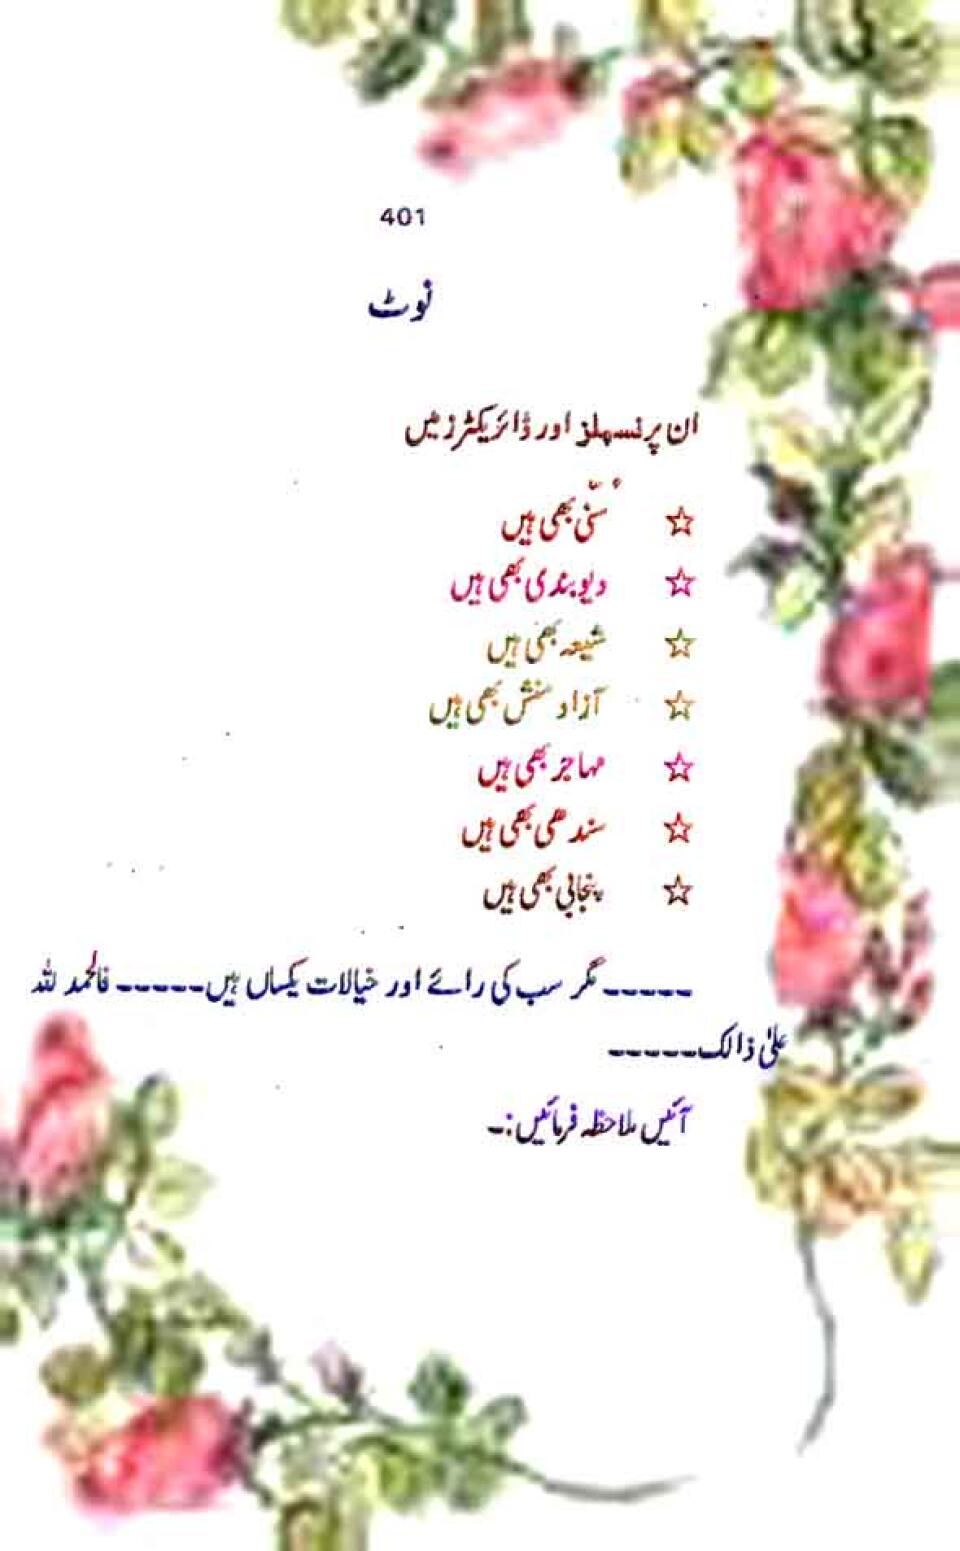 401
نوٹ
ان پرنسپلز اور ڈائریکٹرز میں
☆ سنّی بھی ہیں
☆ دیوبندی بھی ہیں
☆ شیعہ بھی ہیں
☆ آزاد منش بھی ہیں
☆ مہاجر بھی ہیں
☆ سندھی بھی ہیں
☆ پنجابی بھی ہیں
-----مگر سب کی رائے اور خیالات یکساں ہیں-----فالحمد للہ
علیٰ ذالک-----
آئیں ملاحظہ فرمائیں:۔